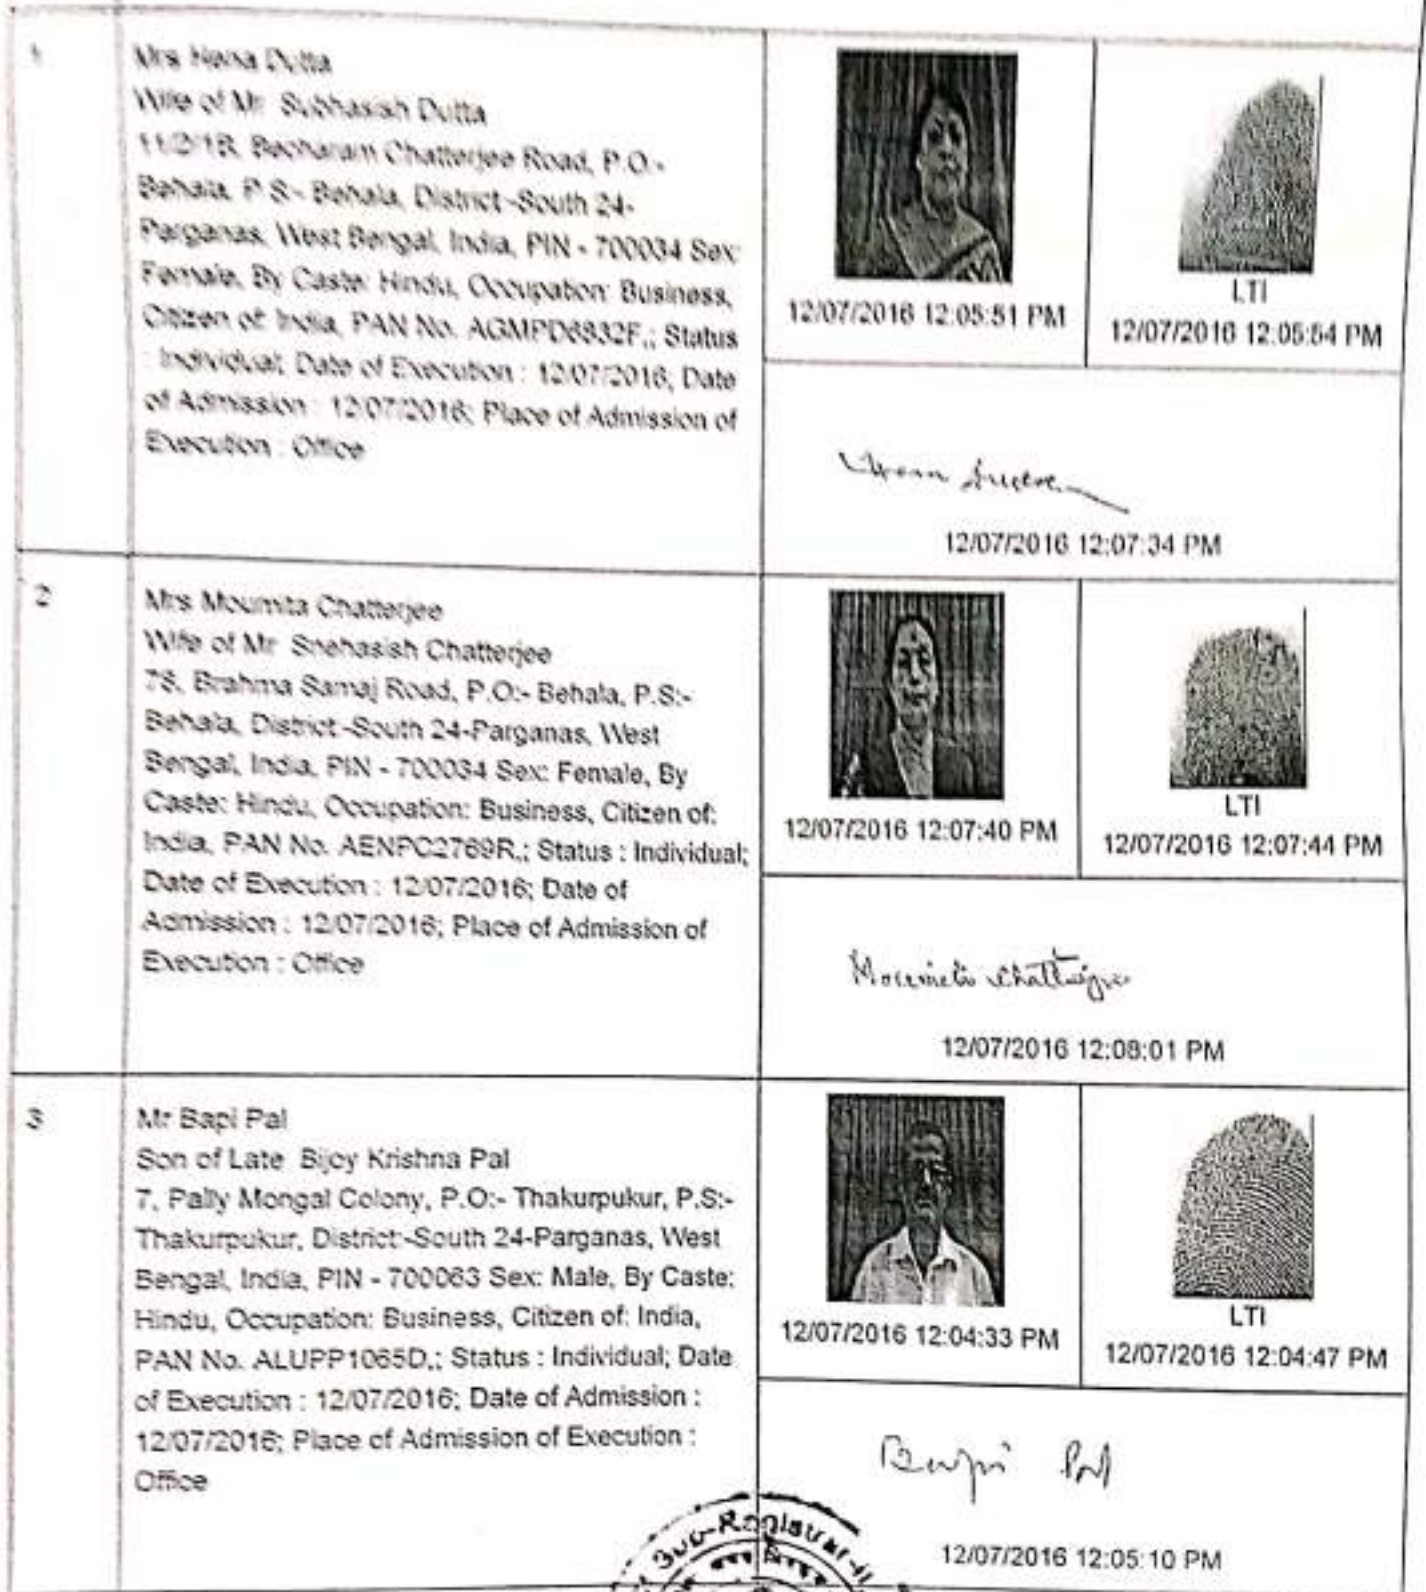 1
Mrs Hena Dutta
Wife of Mr Subhasish Dutta
11/2/1B, Becharam Chatterjee Road, P.O.-
Behala, P.S:- Behala, District:-South 24-
Parganas, West Bengal, India, PIN - 700034 Sex:
Female, By Caste: Hindu, Occupation: Business,
Citizen of: India, PAN No. AGMPD6832F,; Status
: Individual; Date of Execution : 12/07/2016; Date
of Admission : 12/07/2016; Place of Admission of
Execution : Office
12/07/2016 12:05:51 PM
LTI
12/07/2016 12:05:54 PM
12/07/2016 12:07:34 PM
2
Mrs Moumita Chatterjee
Wife of Mr Snehasish Chatterjee
78, Brahma Samaj Road, P.O:- Behala, P.S:-
Behala, District:-South 24-Parganas, West
Bengal, India, PIN - 700034 Sex: Female, By
Caste: Hindu, Occupation: Business, Citizen of:
India, PAN No. AENPC2769R,; Status : Individual;
Date of Execution : 12/07/2016; Date of
Admission : 12/07/2016; Place of Admission of
Execution : Office
12/07/2016 12:07:40 PM
LTI
12/07/2016 12:07:44 PM
Moumita Chatterjee
12/07/2016 12:08:01 PM
3
Mr Bapi Pal
Son of Late Bijoy Krishna Pal
7, Pally Mongal Colony, P.O:- Thakurpukur, P.S:-
Thakurpukur, District:-South 24-Parganas, West
Bengal, India, PIN - 700063 Sex: Male, By Caste:
Hindu, Occupation: Business, Citizen of: India,
PAN No. ALUPP1065D,; Status : Individual; Date
of Execution : 12/07/2016; Date of Admission :
12/07/2016; Place of Admission of Execution :
Office
12/07/2016 12:04:33 PM
LTI
12/07/2016 12:04:47 PM
Bapi Pal
12/07/2016 12:05:10 PM
Sub-Registrar-II